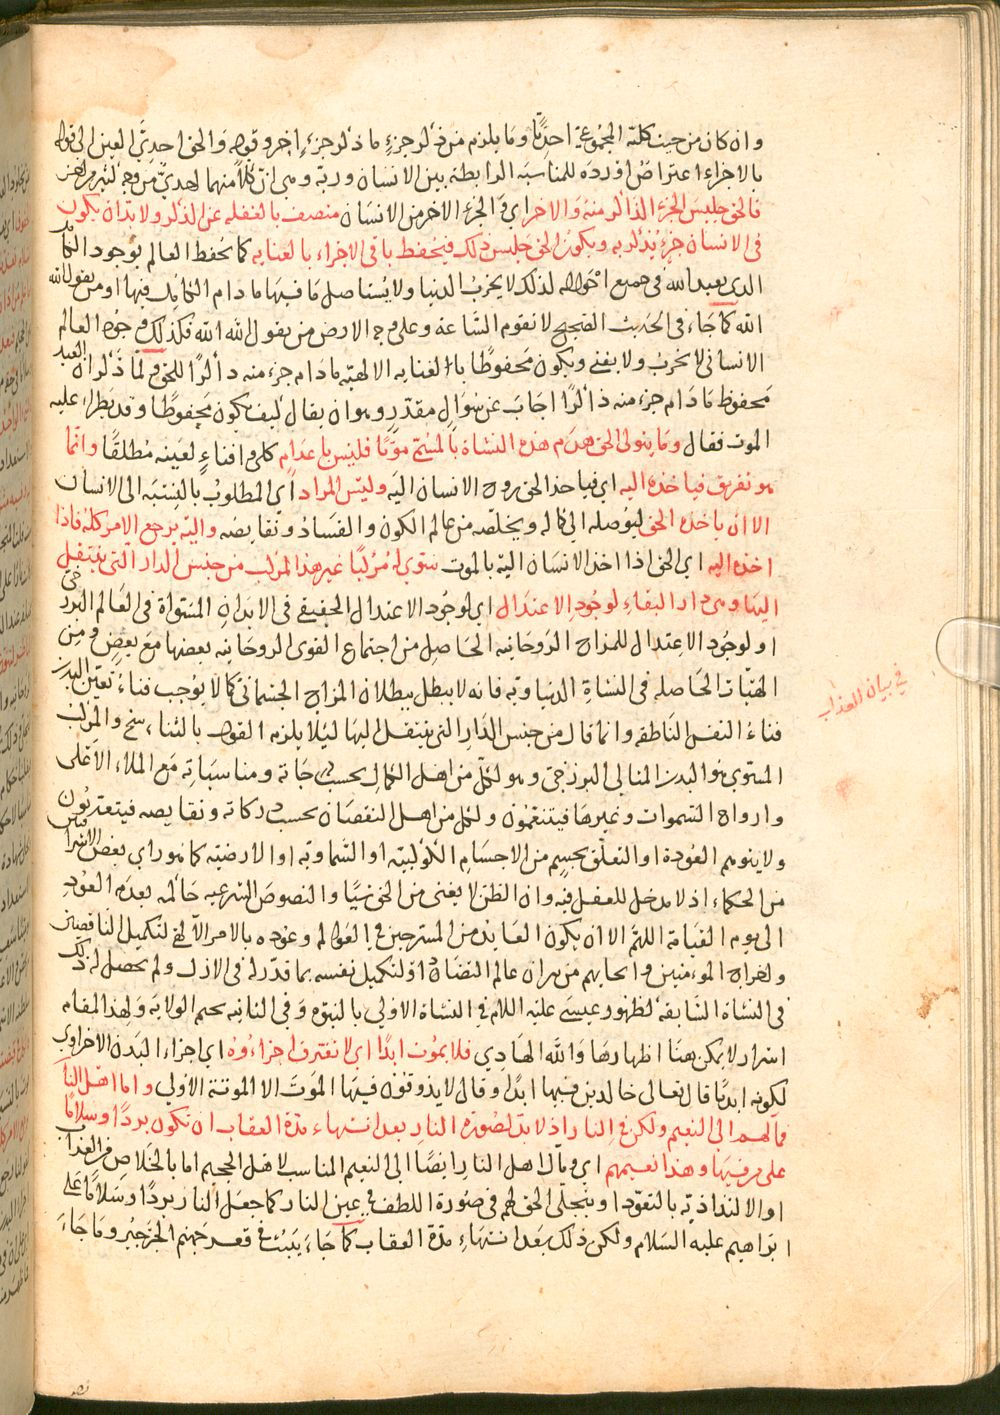 وان كان من حيث كليته المجموعية احديا وما يلزم من ذكر جزءٍ ما ذكر جزءٍ اخر وقوله والحق احدى العين الى قوله
بالاجزاء اعتراض اورده للمناسبة الرابطة بين الانسان وربه وهي ان كلا منهما احدى من وجه كثير من اخر
فالحق جليس الجزء الذاكر منه والاخر اي الجزء الاخر من الانسان متصف بالغفلة عن الذكر ولا بد ان يكون
فى الانسان جزء يذكر به ويكون الحق جليس ذلك فيحفظ باقى الاجزاء بالعناية كما يحفظ العالم بوجود الكامل
الذى يعبد الله فى جميع احواله لذلك لا يخرب الدنيا ولا يستاصل ما فيها ما دام الكامل فيها او من يقول الله
الله كما جاء فى الحديث الصحيح لا تقوم الساعة وعلى وجه الارض من يقول الله الله فكذلك وجود العالم
الانسانى لا يخرب ولا يفنى ويكون محفوظا بالعناية الالهية ما دام جزء منه ذاكرا للحق ولما ذكر ان العبد
محفوظ ما دام جزء منه ذاكرا اجاب عن سوال مقدر وهو ان يقال كيف يكون محفوظا وقد يطرا عليه
الموت فقال وما يتولى الحق هدم هذه النشاة بالمسمى موتا فليس باعدام كلى وافناءٍ لعينه مطلقا وانما
هو تفريق فياخذه اليه اي فياخذ الحق روح الانسان اليه وليس المراد اي المطلوب بالنسبة الى الانسان
الا ان ياخذه الحق ليوصله الى كماله ويخلصه من عالم الكون والفساد ونقايصه واليه يرجع الامر كله فاذا
اخذه اليه اي الحق اذا اخذ الانسان اليه بالموت سوى له مركبا غير هذا المركب من جنس الدار التى ينتقل
اليها وهى دار البقاء لوجود الاعتدال اي لوجود الاعتدال الحقيقى فى الابدان المستواة فى العالم البرزخى
او لوجود الاعتدال للمزاج الروحانية الحاصل من اجتماع القوى الروحانية بعضها مع بعض ومن
الهيئات الحاصلة فى النشاة الدنياوية فانه لا يبطل ببطلان المزاج الجسمانى كما لا يوجب فناء تعين البدن
فناء النفس الناطقة وانما قال من جنس الدار التى ينتقل اليها ليلا يلزم القول بالتناسخ والمركب
المستوى هو البدن المثالى البرزخى وهو لكل من اهل الكمال بحسب درجاته ومناسباته مع الملاء الاعلى
وارواح السموات وغيرها فيتنعمون ولكل من اهل النقصان بحسب دركاته ونقايصه فيتعذبون
ولا يتوهم العودة او التعلق بجسم من الاجسام الكوكبية او السماوية او الارضية كما هو راي بعض الاشراقيين
من الحكماء اذ لا مدخل للعقل فيه وان الظن لا يغنى من الحق شيا والنصوص الشرعية حاكمة بعدم العود
الى يوم القيامة اللهم الا ان يكون العايد من المسترحين فى العوالم وعوده بالامر الالهى لتكميل الناقصين
واخراج المومنين وانجايهم من نيران عالم التضاد او لتكميل نفسه بما قدر له فى الازل ولم يحصل له ذلك
فى النشاة السابقة كظهور عيسى عليه السلام فى النشاة الاولى بالنبوة وفى الثانية بختم الولاية ولهذا المقام
اسرار لا يمكن هنا اظهارها والله الهادي فلا يموت ابدا اي لا تفترق اجزاءوه اي اجزاء البدن الاخراوى
لكونه ابديا قال تعالى خالدين فيها ابدا وقال لا يذوقون فيها الموت الا الموتة الاولى واما اهل النار
فمالهم الى النعيم ولكن فى النار اذ لا بد لصورة النار بعد انتهاء مدة العقاب ان تكون بردا وسلاما
على من فيها وهذا نعيمهم اي ومآل اهل النار ايضا الى النعيم المناسب لاهل الجحيم اما بالخلاص من العذاب
او الالتذاذ به بالتعود او بتجلى الحق لهم فى صورة اللطف فى عين النار كما جعل النار بردا وسلاما على
ابراهيم عليه السلام ولكن ذلك بعد انتهاء مدة العقاب كما جاء ينبت فى قعر جهنم الجرجير وما جاء
فى بيان العذاب
نص